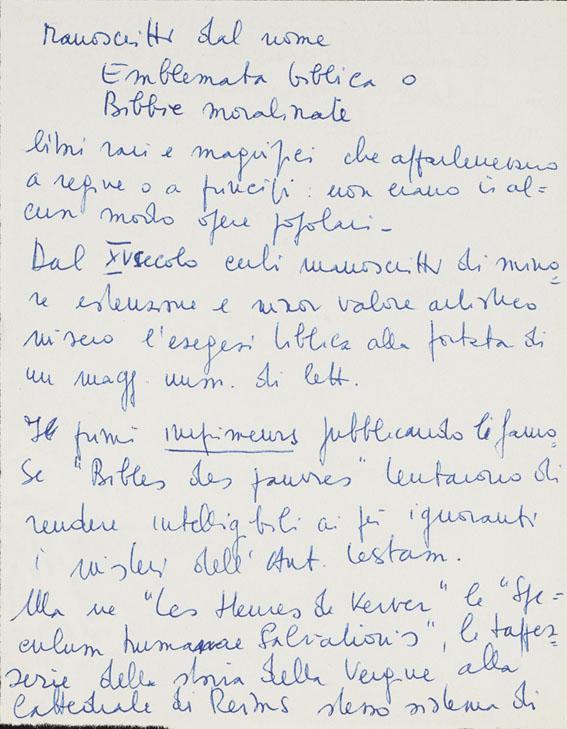 Manoscritti dal nome
Emblemata biblica o
Bibbie moralinate
libri rari e magnifici che appartenevano
a regine o a principi: non erano in al=
cun modo opere popolari -
Dal XV secolo certi manoscritti di mino=
re estensione e minor valore artistico
misero l'esegesi biblica alla portata di
un magg. num. di lett.
I primi imprimeurs pubblicando le famo=
se "Bibles des pauvres" tentarono di
rendere intelligibili ai più ignoranti
i misteri dell'Ant. Testam.
Ma ne "Les Heures de Kerver" le "Spe=
culum humanae Salvationis", le tappez=
zerie della storia della Vergine alla
Cattedrale di Reims stesso sistema di